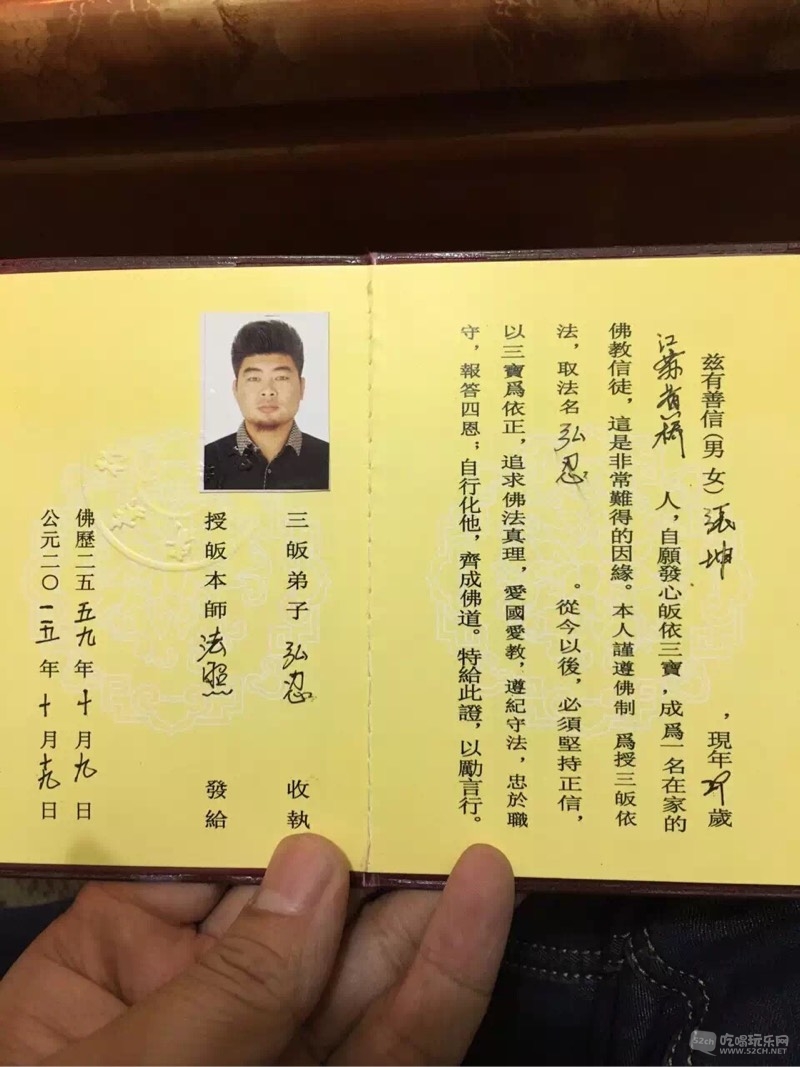 茲有善信(男 女)張坤,現年 歲
江蘇省 人,自願發心皈依三寶,成爲一名在家的
佛教信徒,這是非常難得的因緣。本人謹遵佛制 爲授三皈依
法,取法名弘忍。從今以後,必須堅持正信,
以三寶爲依正,追求佛法真理,愛國愛教,遵紀守法,忠於職
守,報答四恩;自行化他,齊成佛道。特給此證,以勵言行。
三皈弟子 弘忍 收執
授皈本師 法照 發給
佛歷二五五九年十月九日
公元二〇一五年十月 日
52ch 吃喝玩乐网
WWW.52CH.NET